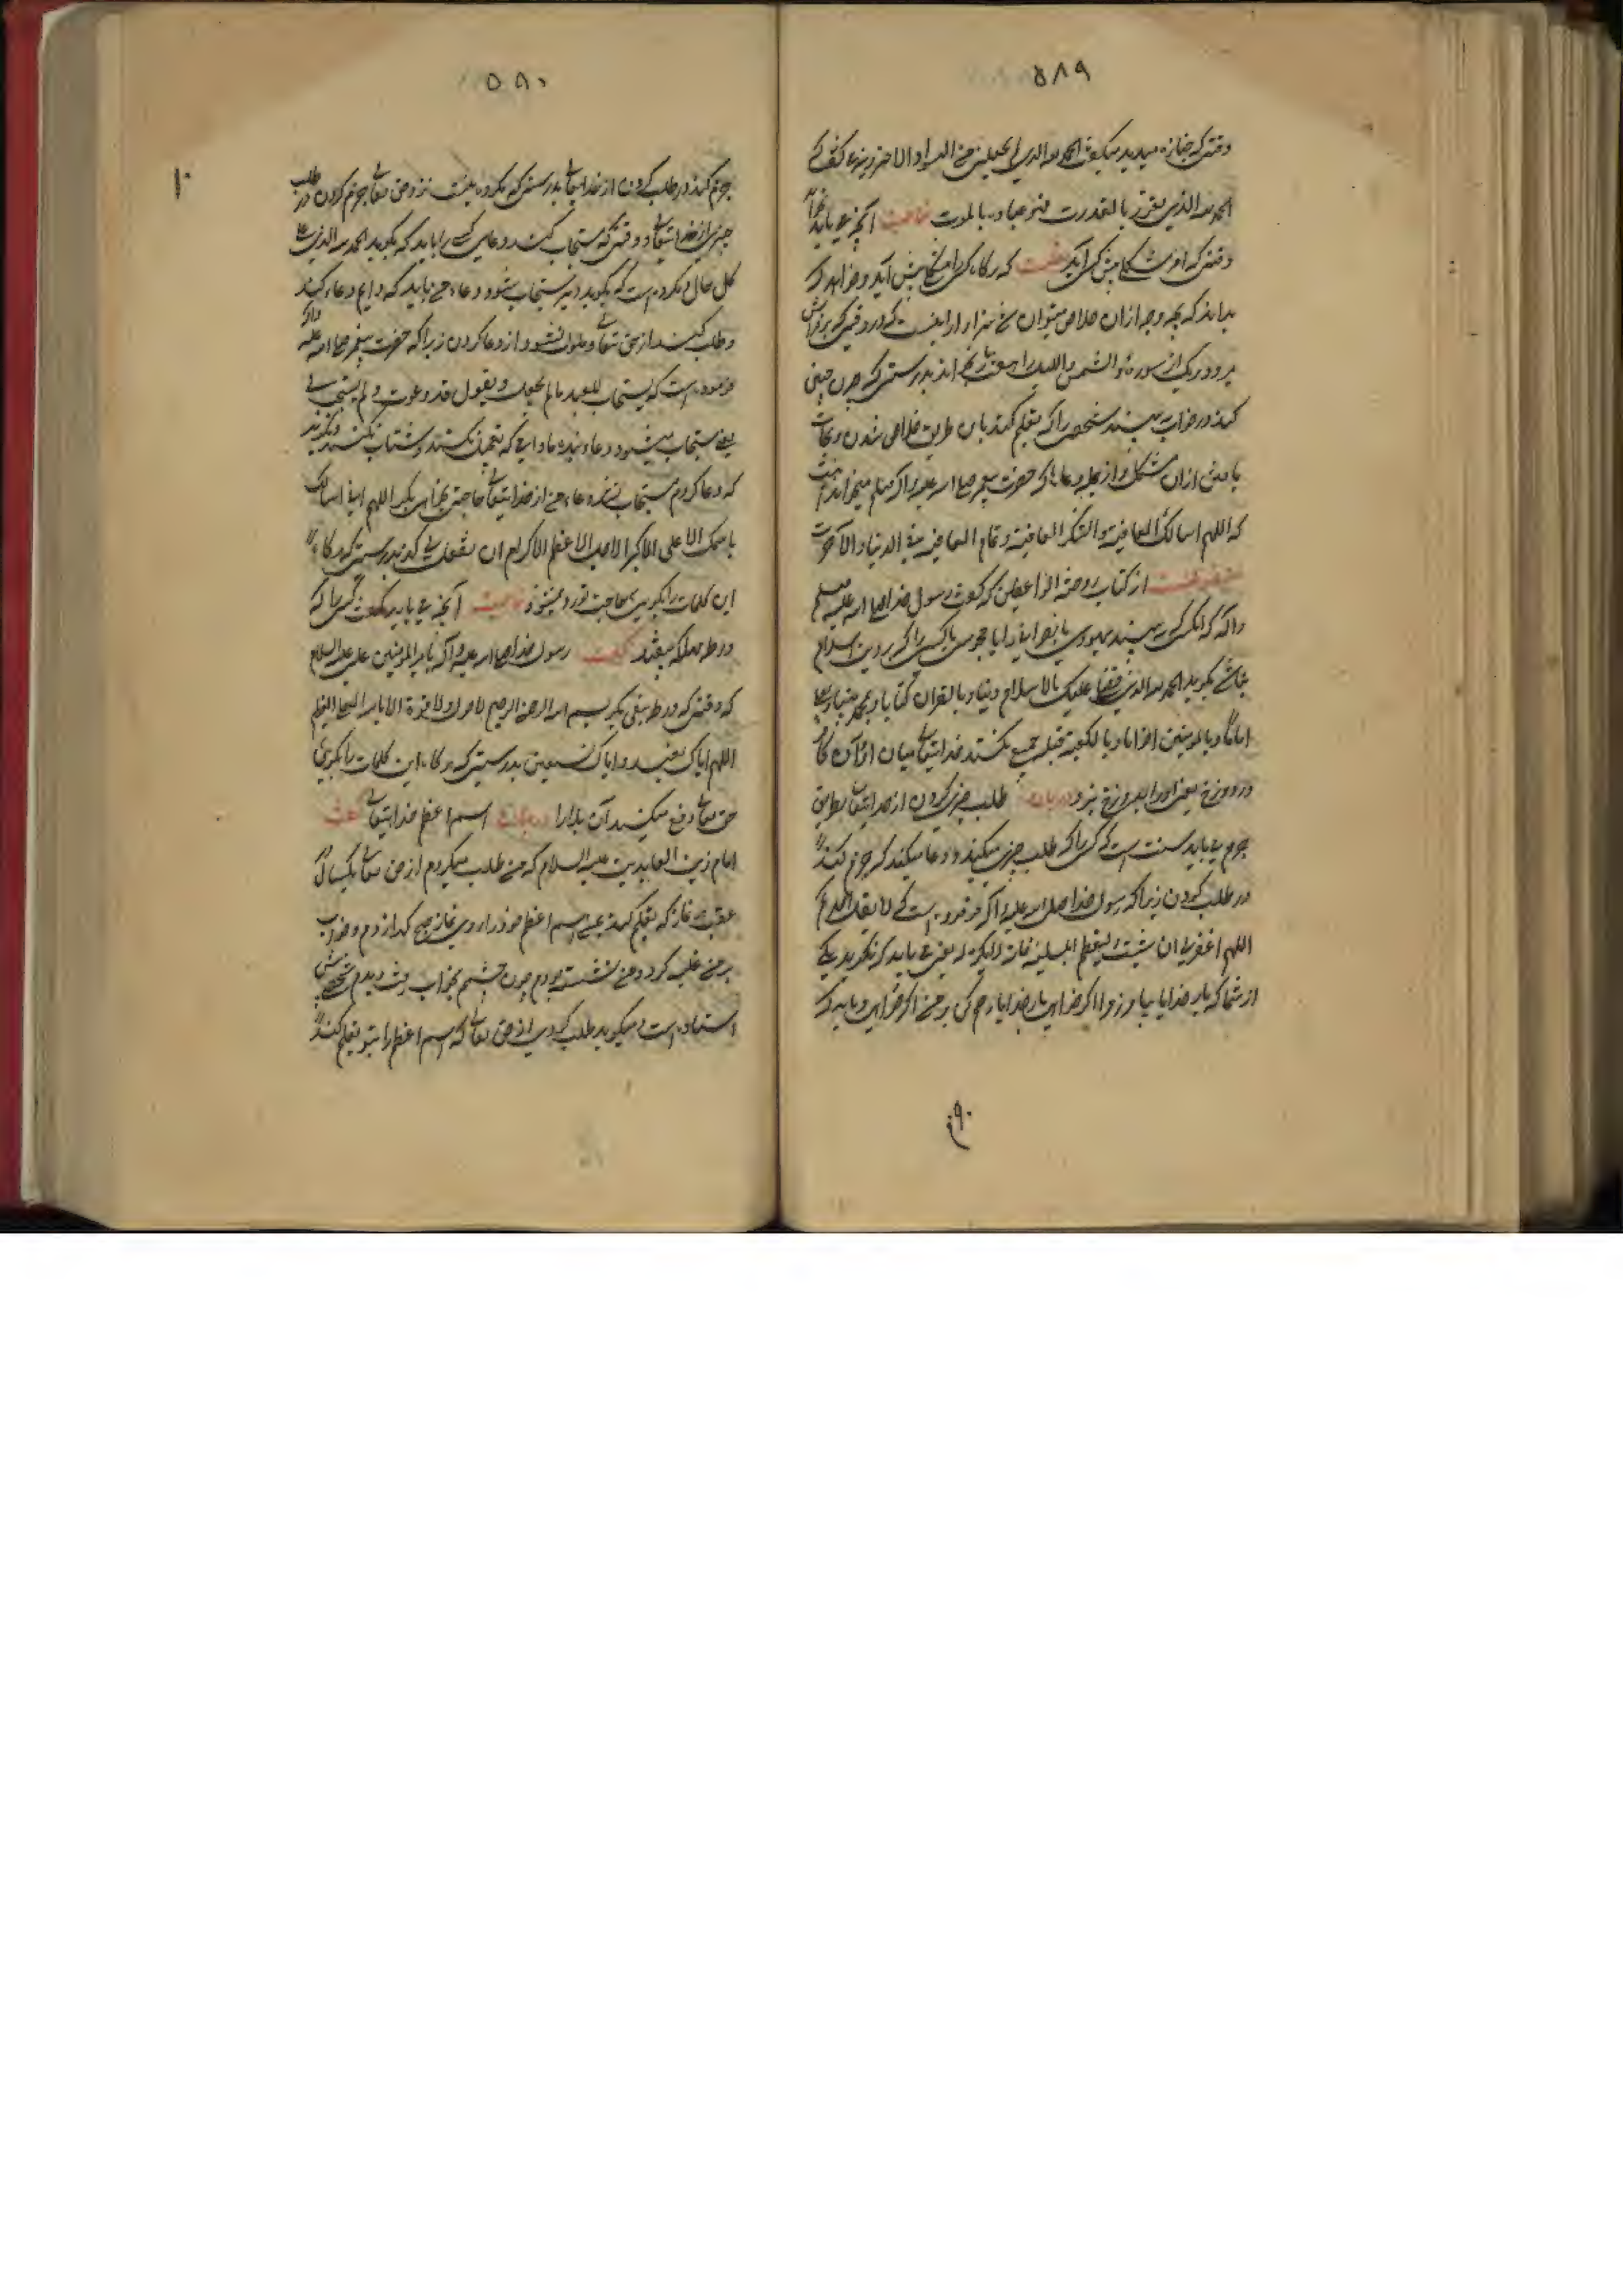 ۵۸۹
وقتی که جنازه میدید میگفت الحمد لله الذی لم یجعلنی من السواد المخترم
الحمد لله الذی تعزز بالقدرت و قهر عباده بالموت آنچه می باید
وقتی که امر مشکلی پیش کسی آید که هرگاه کسی را مشکلی پیش آید و خواهد که
بداند که بچه وجه ازان خلاص میتوان شد
هر دو یک از سوره والشمس واللیل را هفت بار بخواند بدرستی که چون چنین
کند در خواب به بیند شخصی را که تعلیم کند بآن طریق خلاص شدن و نجات
یافتن ازان مشکل و از جمله دعاها که حضرت پیغمبر صلی الله علیه و آله
که اللهم اسالک العافیة و الشکر العافیة و تمام العافیة فی الدنیا و الآخرت
از کتاب روضة الواعظین که گفت رسول خدا صلی الله علیه
و آله که آنکس که به بیند یهودی یا نصرانی را یا مجوسی یا کسی را که بر دین اسلام
نباشد بگوید الحمد لله الذی فضلنی علیک بالاسلام دینا و بالقران کتابا و بمحمد نبیا و بعلی
اماما و بالمومنین اخوانا و بالکعبة قبلة جمع نکند خدا یتعالی میان او و آن کافر
در دوزخ یعنی او را بدوزخ نبرد در بیان طلب چیزی کردن از خدا یتعالی بطریق
جزم می باید سنت است کسی را که طلب چیزی میکند و دعا میکند که جزم کند
در طلب کردن زیرا که رسول خدا صلی الله علیه و آله فرموده است که لا یقل احدکم
اللهم اغفر لی ان شئت و لیعظم المسئلة فانه لا یکره له یعنی می باید که نگوید یکی
از شما که بار خدایا بیامرز مرا اگر خواهی بار خدایا رحم کن بر من اگر خواهی و باید که
۵۹۰
جزم کند در طلب کردن از خدا یتعالی بدرستی که مکروه نیست نزد حق تعالی جزم کردن در طلب
چیزی از خدا یتعالی و وقتی که مستجاب کند دعای کسی را باید که بگوید الحمد لله الذی علی
کل حال و مکروه است که بگوید دیر مستجاب شود دعاء من باید که دایم دعاء کند
و طلب کند از حق تعالی و ملول نشود از دعا کردن زیرا که حضرت پیغمبر صلی الله علیه و آله
فرموده است که یستجاب للعبد مالم یعجل و یقول قد دعوت و لم یستجب لی
یعنی مستجاب میشود دعاء بنده مادامی که تعجیل نکند و شتاب نکند و نگوید
که دعا کردم مستجاب نشد دعاء من از خدا یتعالی حاجتی بخواهی بگو اللهم انی اسالک
باسمک الاعلی الاکبر الاجل الاعظم الاکرم ان تفعل لی کذا بدرستی که هرگاه
این کلمات را بگویی حاجت تو روا میشود آنچه می باید گفت کسی را که
در ورطه مهلکه بیفتد گفت رسول خدا صلی الله علیه و آله بامیر المومنین علی علیه السلام
که وقتی که در ورطه بیفتی بگو بسم الله الرحمن الرحیم لا حول و لا قوة الا بالله العلی العظیم
اللهم ایاک نعبد و ایاک نستعین بدرستی که هرگاه این کلمات را بگوئی
حق تعالی دفع میکند آن بلا را در بیان اسم اعظم خدا یتعالی گفت
امام زین العابدین علیه السلام که من طلب میکردم از حق تعالی یکسال در
عقب هر نماز که تعلیم کند بمن اسم اعظم خود را روزی نماز صبح گذاردم و خواب
بر من غلبه کرد و من نشسته بودم چون چشم بخواب رفت دیدم شخصی پیش
استاده است و میگوید طلب کردی از حق تعالی که اسم اعظم را بتو تعلیم کند